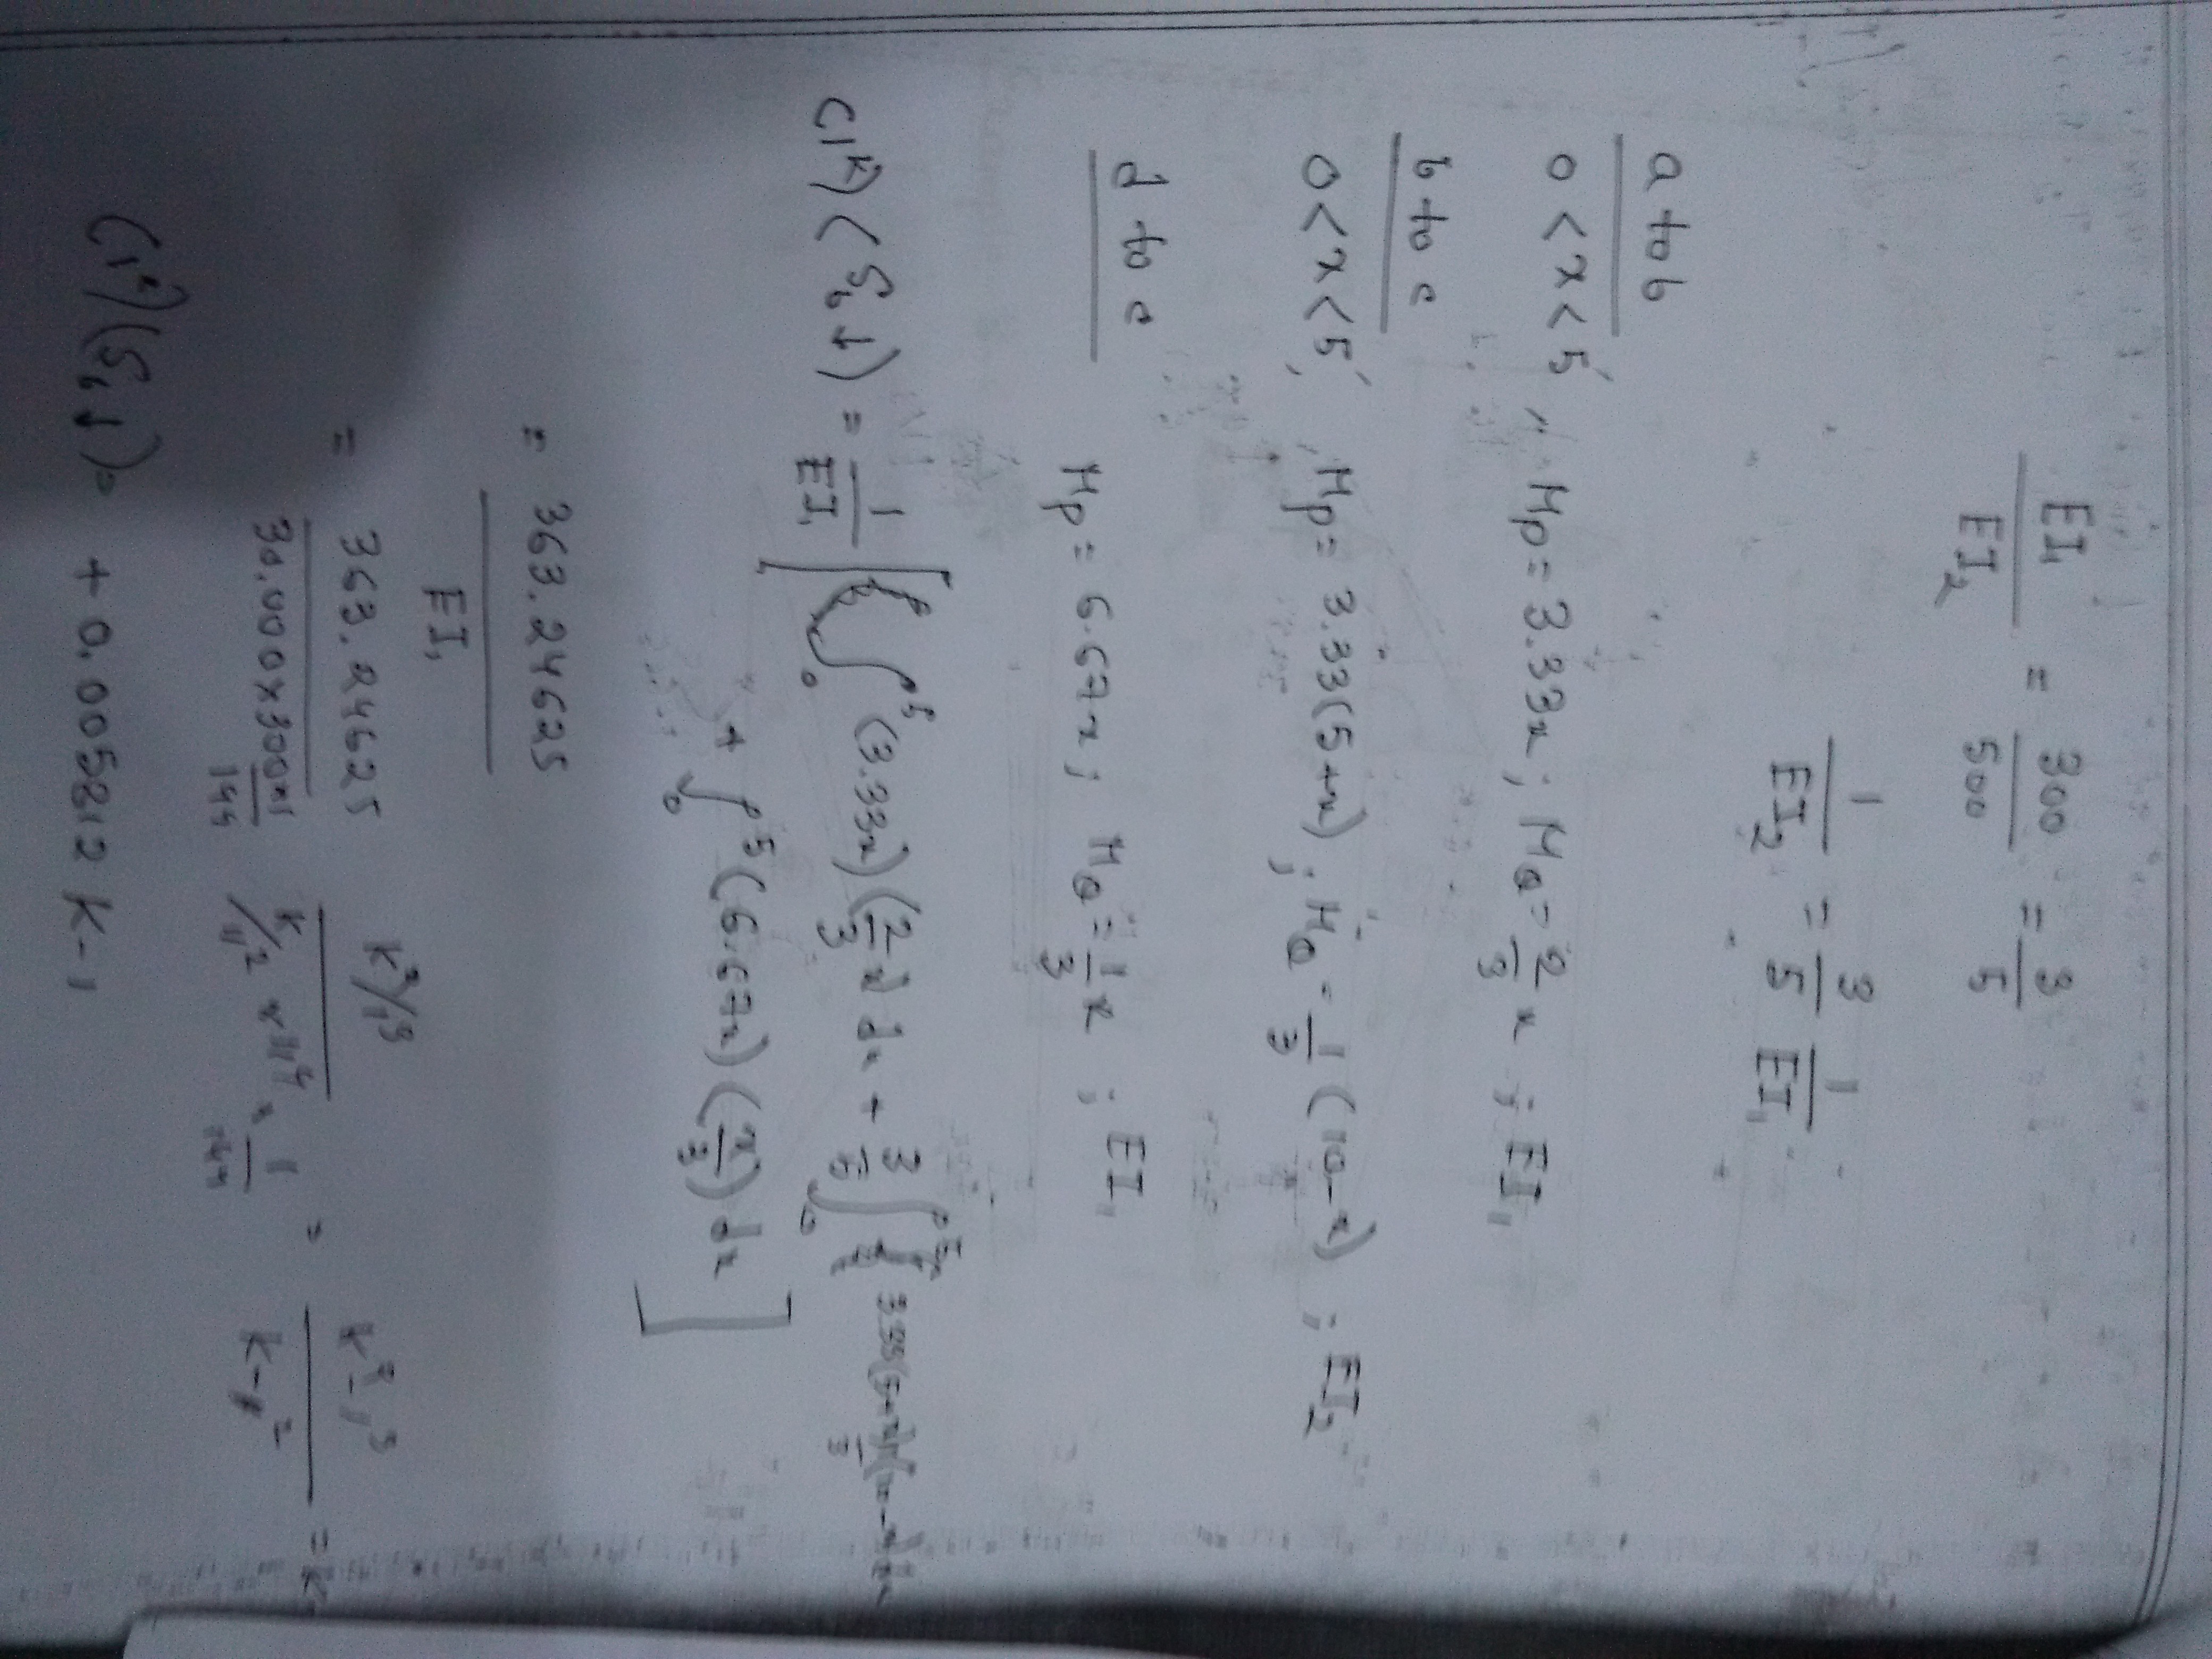 EI₁/EI₂ = 300/500 = 3/5
1/EI₂ = 3/5 1/EI₁
a to b
0 < x < 5', Mp = 3.33x ; MQ = 2/3 x ; EI₁
b to c
0 < x < 5', Mp = 3.33(5+x) ; MQ = 1/3 (10-x) ; EI₂
d to c
Mp = 6.67x ; MQ = 1/3 x ; EI₁
(1ᵏ)(δb↓) = 1/EI₁ [ ∫₀⁵ (3.33x)(2/3 x) dx + 3/5 ∫₀⁵ 3.33(5+x)(10-x)/3 dx
+ ∫₀⁵ (6.67x)(x/3) dx ]
= 363.24625/EI₁ k²/1³
= 363.24625/30,000x300x1/144 k/1² x 1⁴ x 1/144 = k²-1³/k-1² =
(1ᵏ)(δb↓) = + 0.005812 k-1